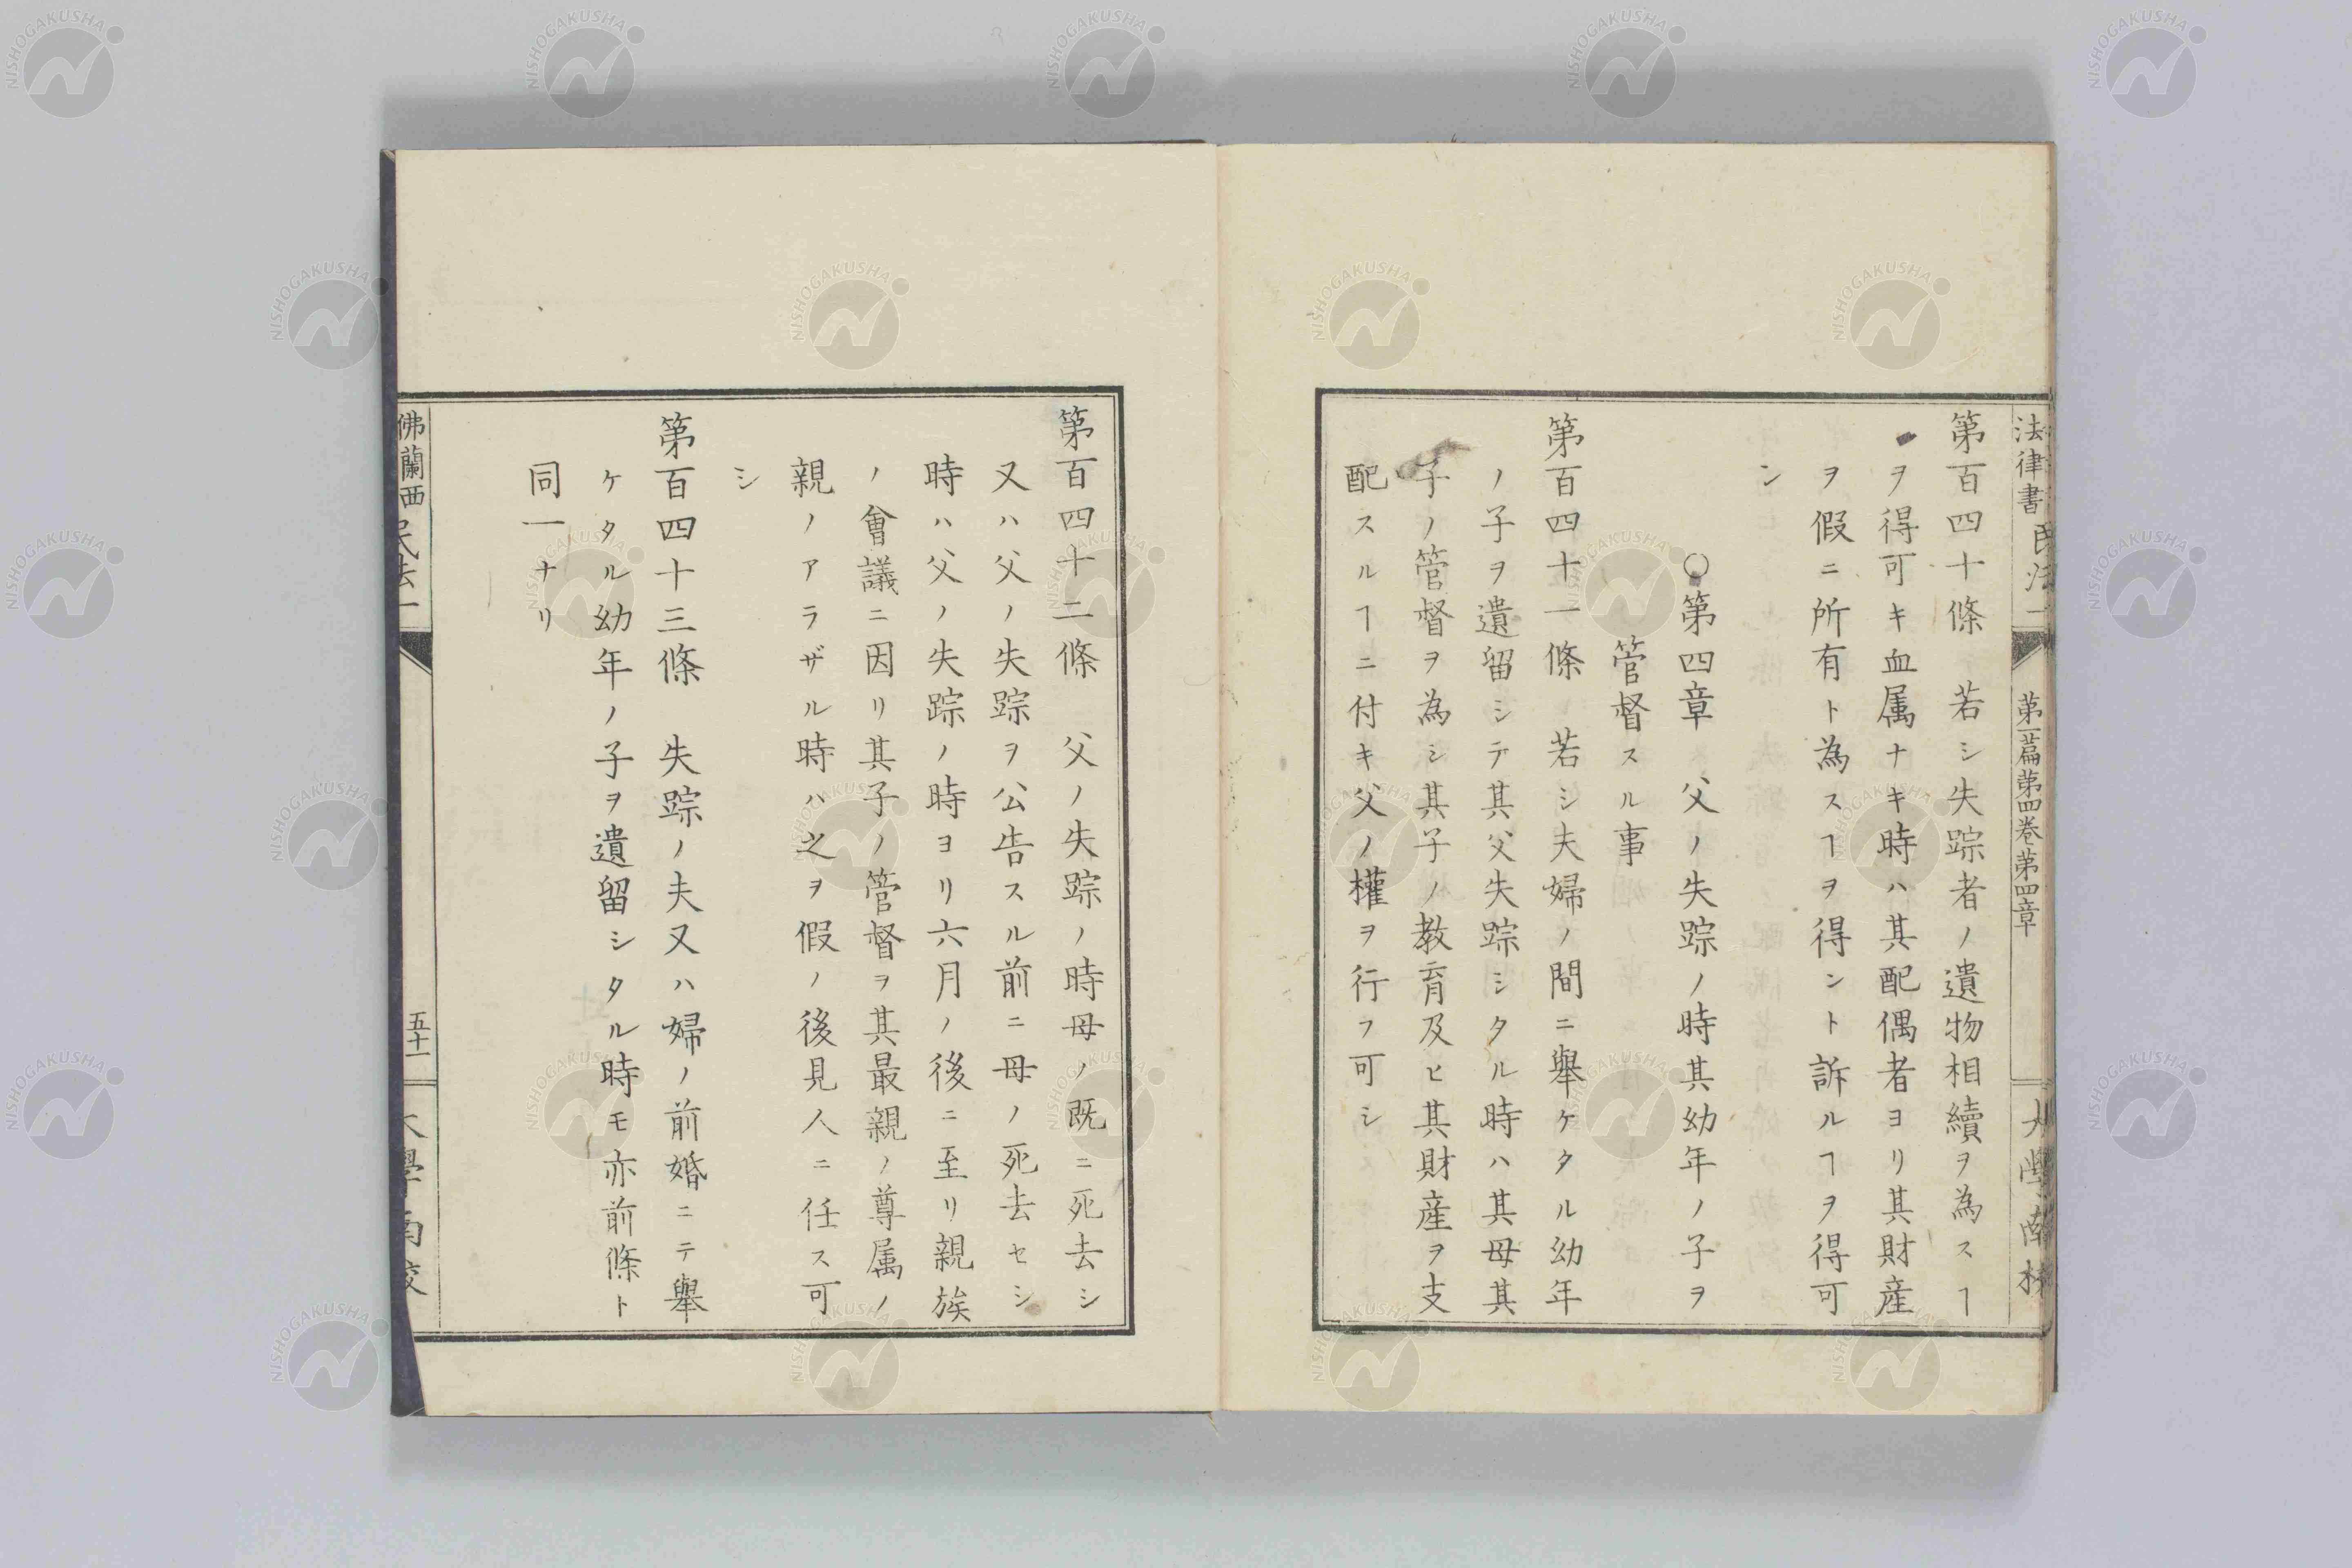 法律書 民法一 第一篇第四卷第四章 大學南校
第百四十條 若シ失踪者ノ遺物相續ヲ為スヿ
ヲ得可キ血属ナキ時ハ其配偶者ヨリ其財産
ヲ假ニ所有ト為スヿヲ得ント訴ルヿヲ得可
シ
○第四章 父ノ失踪ノ時其幼年ノ子ヲ
管督スル事
第百四十一條 若シ夫婦ノ間ニ舉ケタル幼年
ノ子ヲ遺留シテ其父失踪シタル時ハ其母其
子ノ管督ヲ為シ其子ノ教育及ヒ其財産ヲ支
配スルヿニ付キ父ノ權ヲ行フ可シ
第百四十二條 父ノ失踪ノ時母ノ既ニ死去シ
又ハ父ノ失踪ヲ公告スル前ニ母ノ死去セシ
時ハ父ノ失踪ノ時ヨリ六月ノ後ニ至リ親族
ノ會議ニ因リ其子ノ管督ヲ其最親ノ尊属ノ
親ノアラザル時ハ之ヲ假ノ後見人ニ任ス可
シ
第百四十三條 失踪ノ夫又ハ婦ノ前婚ニテ舉
ケタル幼年ノ子ヲ遺留シタル時モ亦前條ト
同一ナリ
佛蘭西民法一 五十一 大學南校
NISHOGAKUSHA